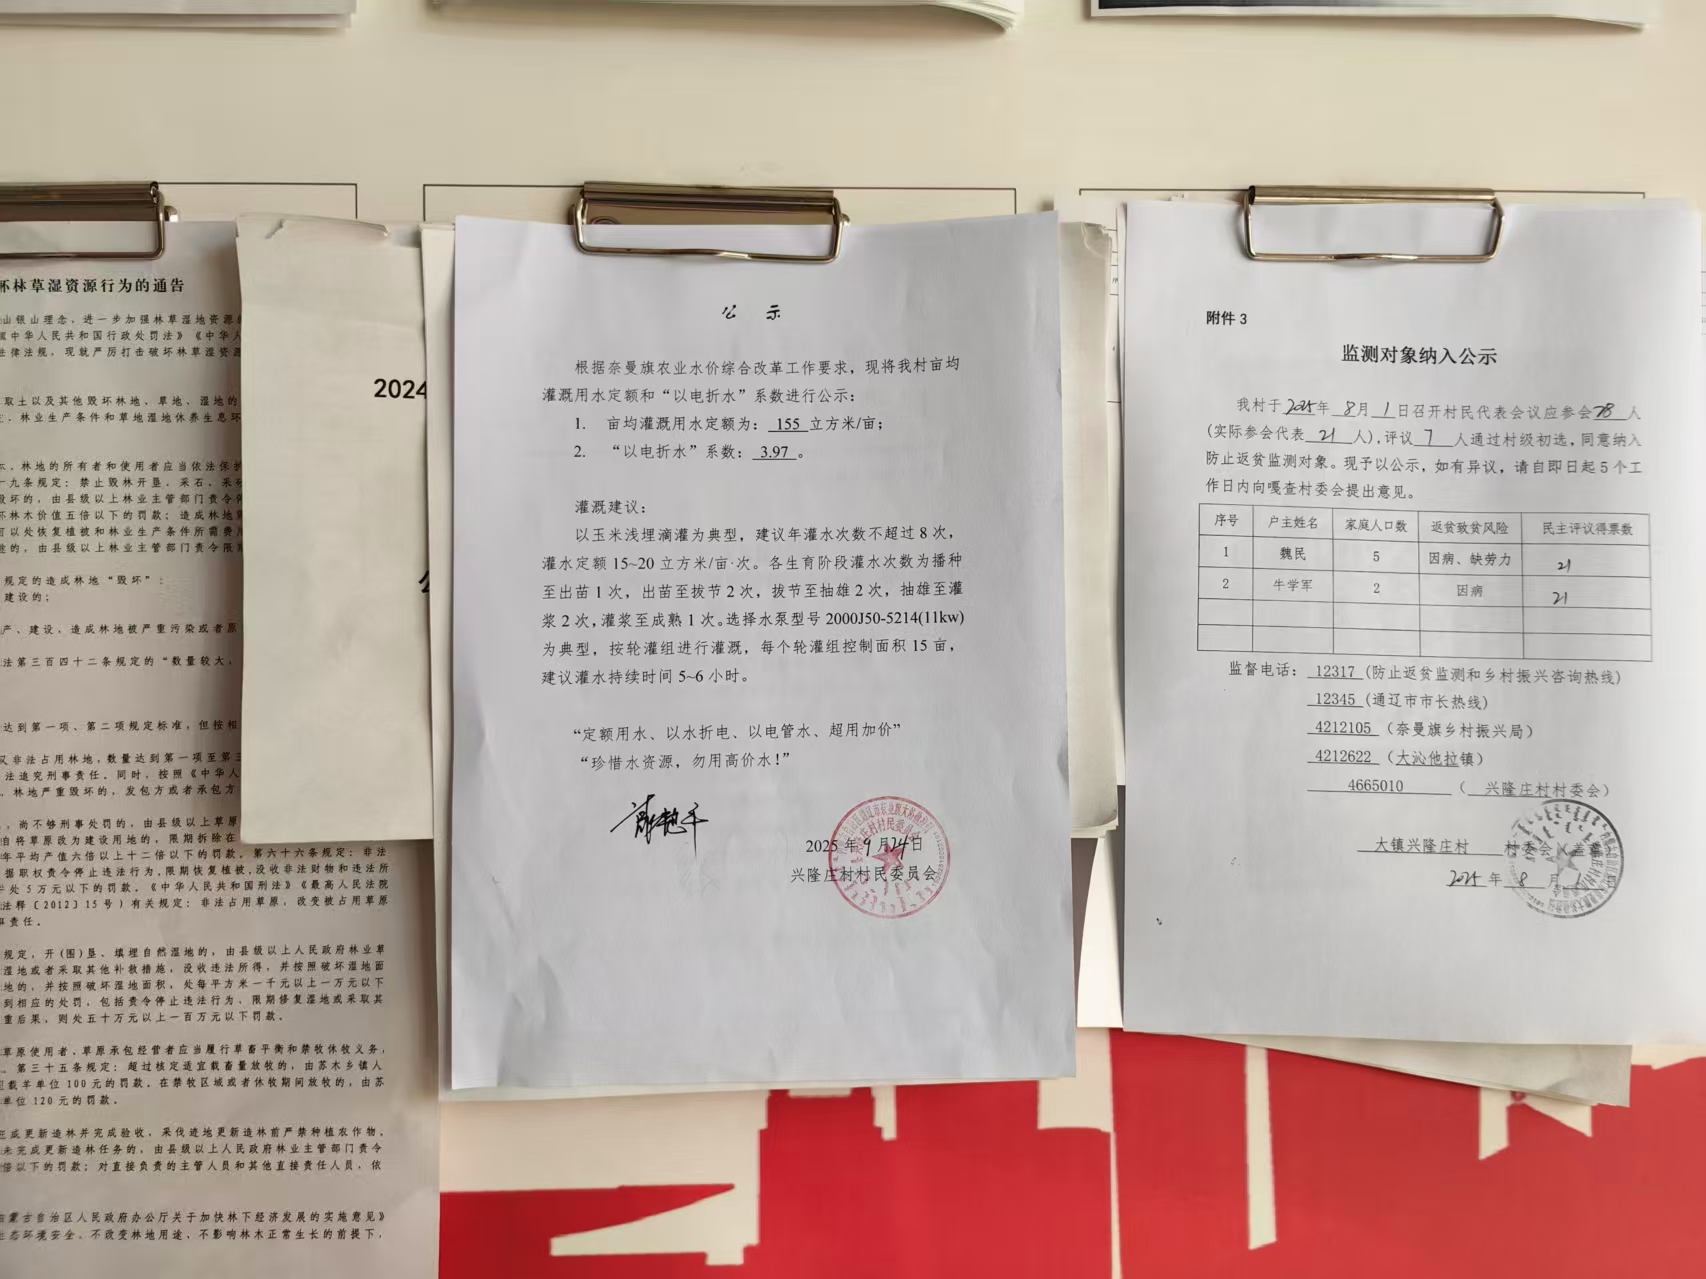 坏林草湿资源行为的通告
山银山理念，进一步加强林草湿地资源
《中华人民共和国行政处罚法》《中华人
律法规，现就严厉打击破坏林草湿资源
取土以及其他毁坏林地、草地、湿地的
林业生产条件和草地湿地休养生息环
林地的所有者和使用者应当依法保护
十九条规定：禁止毁林开垦、采石、采
毁坏的，由县级以上林业主管部门责令停
坏林木价值五倍以下的罚款；造成林地
可以处恢复植被和林业生产条件所需费用
的，由县级以上林业主管部门责令限期
规定的造成林地“毁坏”：
建设的；
产、建设，造成林地被严重污染或者原
法第三百四十二条规定的“数量较大，
达到第一项、第二项规定标准，但按相
又非法占用林地，数量达到第一项至第三
法追究刑事责任。同时，按照《中华人
，林地严重毁坏的，发包方或者承包方
，尚不够刑事处罚的，由县级以上草原
自将草原改为建设用地的，限期拆除在
年平均产值六倍以上十二倍以下的罚款。第六十六条规定：非法
据职权责令停止违法行为，限期恢复植被，没收非法财物和违法所
处5万元以下的罚款。《中华人民共和国刑法》《最高人民法院
法释〔2012〕15号）有关规定：非法占用草原，改变被占用草原
事责任。
规定，开(围)垦、填埋自然湿地的，由县级以上人民政府林业草
湿地或者采取其他补救措施，没收违法所得，并按照破坏湿地面
地的，并按照破坏湿地面积，处每平方米一千元以上一万元以下
到相应的处罚，包括责令停止违法行为、限期修复湿地或采取其
重后果，则处五十万元以上一百万元以下罚款。
草原使用者、草原承包经营者应当履行草畜平衡和禁牧休牧义务，
。第三十五条规定：超过核定适宜载畜量放牧的，由苏木乡镇人
载羊单位100元的罚款。在禁牧区域或者休牧期间放牧的，由苏
单位120元的罚款。
更新造林并完成验收，采伐迹地更新造林前严禁种植农作物。
未完成更新造林任务的，由县级以上人民政府林业主管部门责令
倍以下的罚款；对直接负责的主管人员和其他直接责任人员，依
蒙古自治区人民政府办公厅关于加快林下经济发展的实施意见》
生态环境安全、不改变林地用途、不影响林木正常生长的前提下，
2024
公示
根据奈曼旗农业水价综合改革工作要求，现将我村亩均
灌溉用水定额和“以电折水”系数进行公示：
1. 亩均灌溉用水定额为：155 立方米/亩；
2. “以电折水”系数：3.97 。
灌溉建议：
以玉米浅埋滴灌为典型，建议年灌水次数不超过 8 次，
灌水定额 15~20 立方米/亩·次。各生育阶段灌水次数为播种
至出苗 1 次，出苗至拔节 2 次，拔节至抽雄 2 次，抽雄至灌
浆 2 次，灌浆至成熟 1 次。选择水泵型号 2000J50-5214(11kw)
为典型，按轮灌组进行灌溉，每个轮灌组控制面积 15 亩，
建议灌水持续时间 5~6 小时。
“定额用水、以水折电、以电管水、超用加价”
“珍惜水资源，勿用高价水！”
2025 年 9 月 24 日
兴隆庄村村民委员会
附件 3
监测对象纳入公示
我村于 2025 年 8 月 1 日召开村民代表会议应参会 28 人
(实际参会代表 21 人)，评议 7 人通过村级初选，同意纳入
防止返贫监测对象。现予以公示，如有异议，请自即日起 5 个工
作日内向嘎查村委会提出意见。
序号 户主姓名 家庭人口数 返贫致贫风险 民主评议得票数
1 魏民 5 因病、缺劳力 21
2 牛学军 2 因病 21
监督电话：12317 (防止返贫监测和乡村振兴咨询热线)
12345 (通辽市市长热线)
4212105 (奈曼旗乡村振兴局)
4212622 (大沁他拉镇)
4665010 ( 兴隆庄村村委会)
大镇兴隆庄村 村委会（盖章
2025 年 8 月